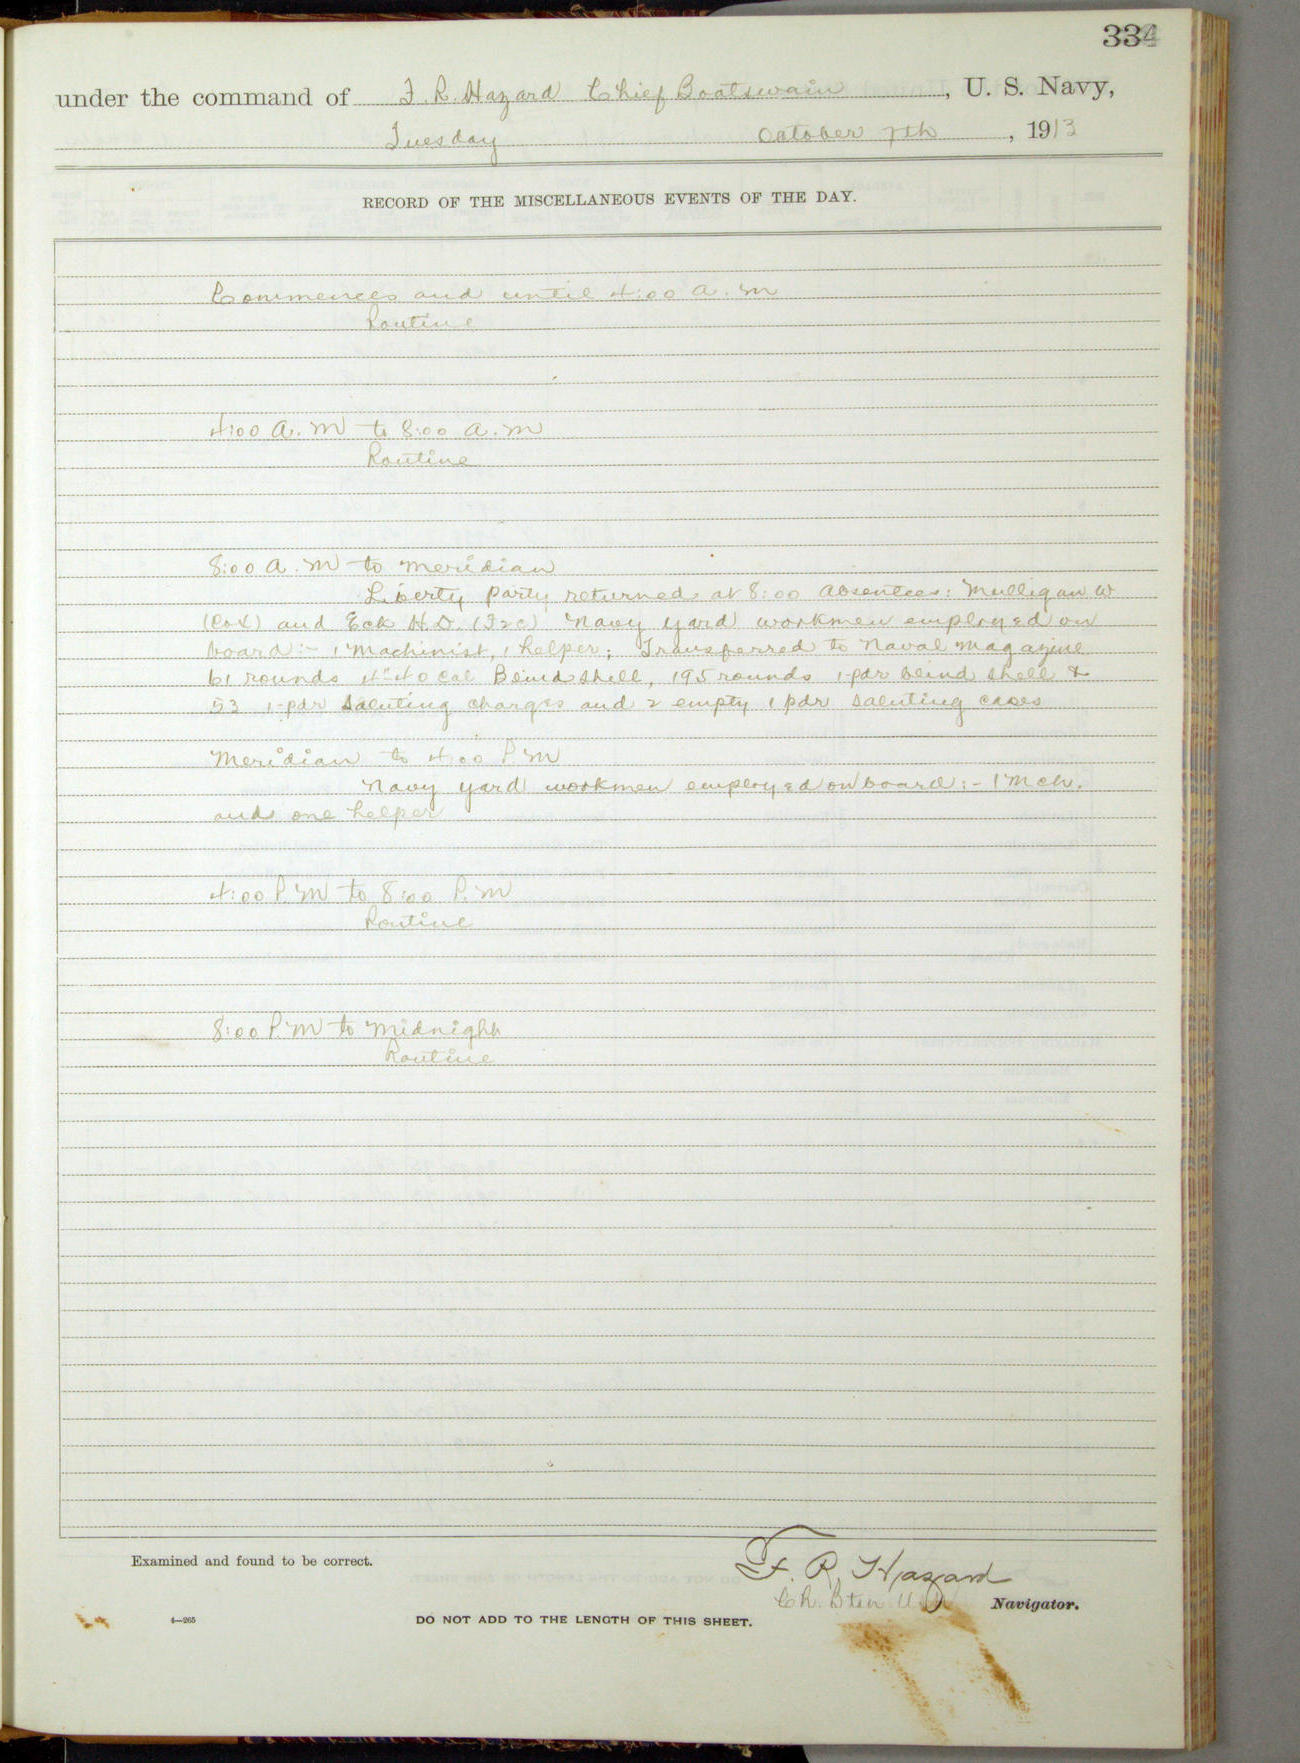 334
under the command of F. R. Hazard Chief Boatswain, U. S. Navy,
Tuesday October 7th, 1913
RECORD OF THE MISCELLANEOUS EVENTS OF THE DAY.
Commences and until 4:00 A.M
Routine
4:00 A.M to 8:00 A.M
Routine
8:00 A.M to Meridian
Liberty party returned at 8:00 Absentees: Mulligan W
(Cox) and Eck H.D. (F2c) Navy yard workmen employed on
board:- 1 Machinist, 1 helper; Transferred to Naval Magazine
61 rounds 4" 40 cal Blind shell, 195 rounds 1-pdr blind shell &
53 1-pdr Saluting charges and 2 empty 1 pdr saluting cases
Meridian to 4:00 P.M
Navy yard workmen employed on board:- 1 Mch.
and one helper
4:00 P.M to 8:00 P.M
Routine
8:00 P.M to Midnight
Routine
Examined and found to be correct.
F. R. Hazard
Ch. Btsn U.S.N Navigator.
4—265
DO NOT ADD TO THE LENGTH OF THIS SHEET.